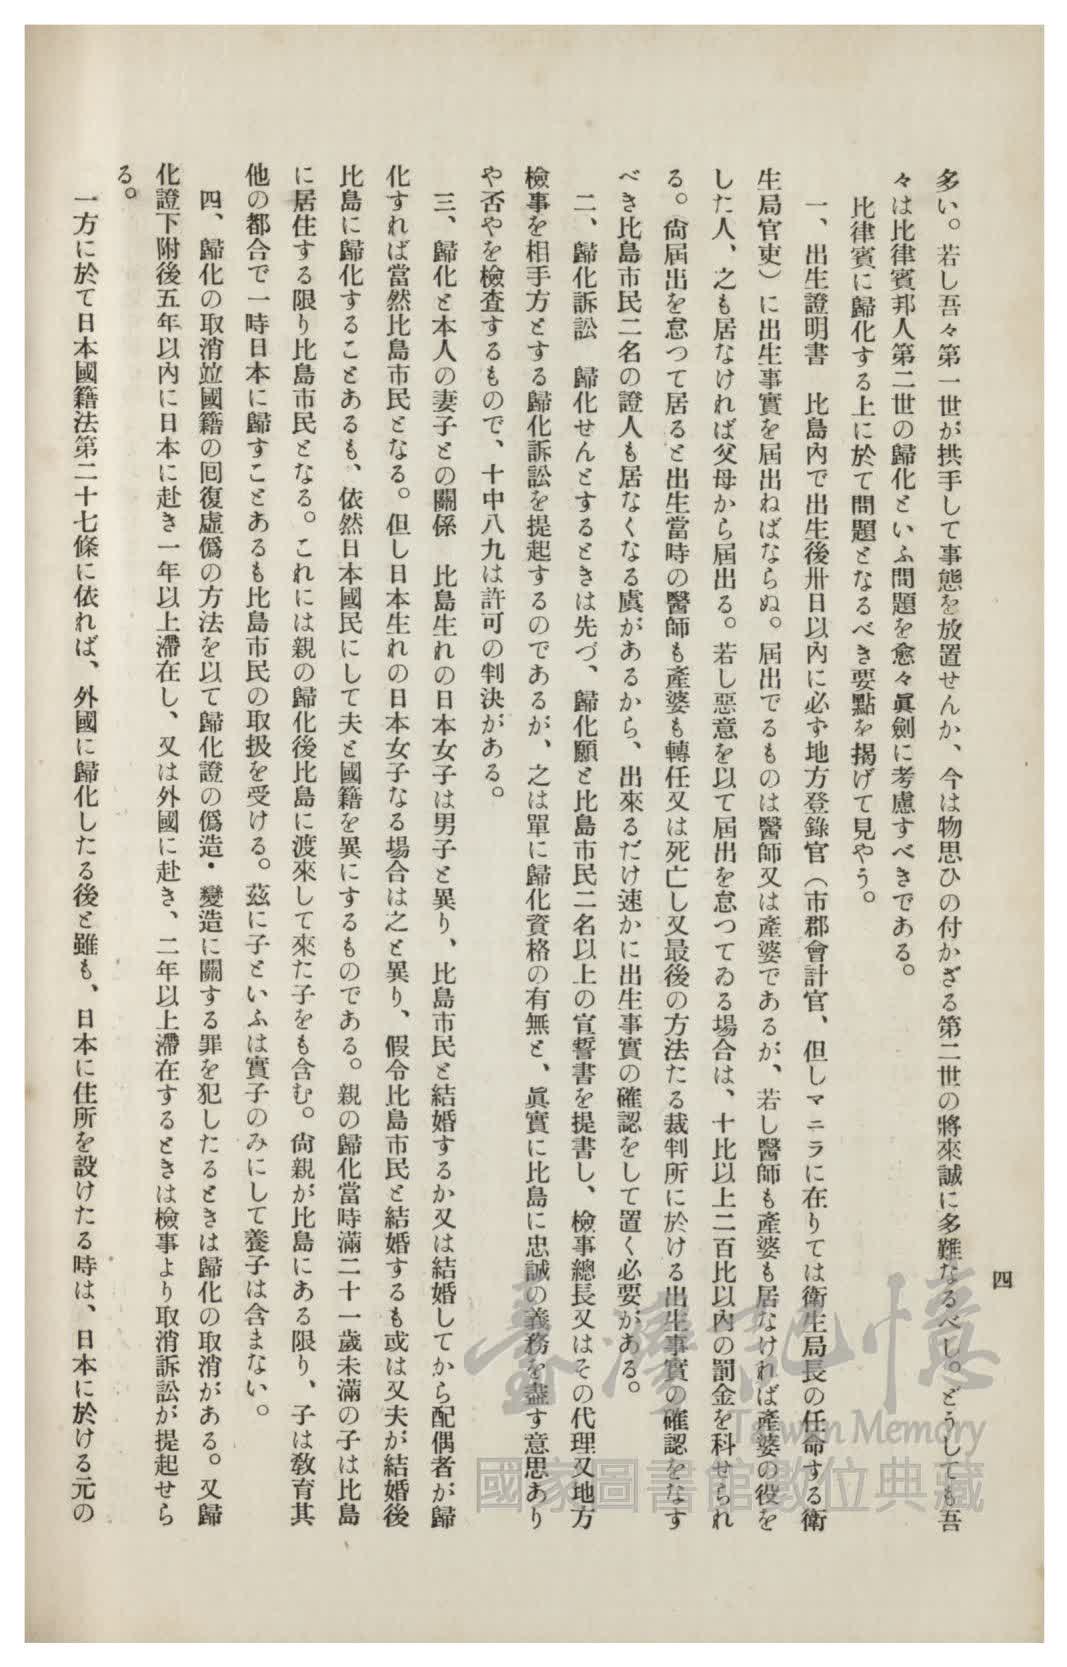 四
多い。若し吾々第一世が拱手して事態を放置せんか、今は物思ひの付かざる第二世の將來誠に多難なるべし。どうしても吾
々は比律賓邦人第二世の歸化といふ問題を愈々眞劍に考慮すべきである。
比律賓に歸化する上に於て問題となるべき要點を揭げて見やう。
一、出生證明書　比島內で出生後卅日以內に必ず地方登錄官（市郡會計官、但しマニラに在りては衛生局長の任命する衛
生局官吏）に出生事實を屆出ねばならぬ。屆出でるものは醫師又は產婆であるが、若し醫師も產婆も居なければ產婆の役を
した人、之も居なければ父母から屆出る。若し惡意を以て屆出を怠つてゐる場合は、十比以上二百比以內の罰金を科せられ
る。尙屆出を怠つて居ると出生當時の醫師も產婆も轉任又は死亡し又最後の方法たる裁判所に於ける出生事實の確認をなす
べき比島市民二名の證人も居なくなる虞があるから、出來るだけ速かに出生事實の確認をして置く必要がある。
二、歸化訴訟　歸化せんとするときは先づ、歸化願と比島市民二名以上の宣誓書を提書し、檢事總長又はその代理又地方
檢事を相手方とする歸化訴訟を提起するのであるが、之は單に歸化資格の有無と、眞實に比島に忠誠の義務を盡す意思あり
や否やを檢查するもので、十中八九は許可の判決がある。
三、歸化と本人の妻子との關係　比島生れの日本女子は男子と異り、比島市民と結婚するか又は結婚してから配偶者が歸
化すれば當然比島市民となる。但し日本生れの日本女子なる場合は之と異り、假令比島市民と結婚するも或は又夫が結婚後
比島に歸化することあるも、依然日本國民にして夫と國籍を異にするものである。親の歸化當時滿二十一歲未滿の子は比島
に居住する限り比島市民となる。これには親の歸化後比島に渡來して來た子をも含む。尙親が比島にある限り、子は敎育其
他の都合で一時日本に歸すことあるも比島市民の取扱を受ける。茲に子といふは實子のみにして養子は含まない。
四、歸化の取消竝國籍の囘復虛僞の方法を以て歸化證の僞造・變造に關する罪を犯したるときは歸化の取消がある。又歸
化證下附後五年以內に日本に赴き一年以上滯在し、又は外國に赴き、二年以上滯在するときは檢事より取消訴訟が提起せら
る。
一方に於て日本國籍法第二十七條に依れば、外國に歸化したる後と雖も、日本に住所を設けたる時は、日本に於ける元の
臺灣記憶
Taiwan Memory
國家圖書館數位典藏